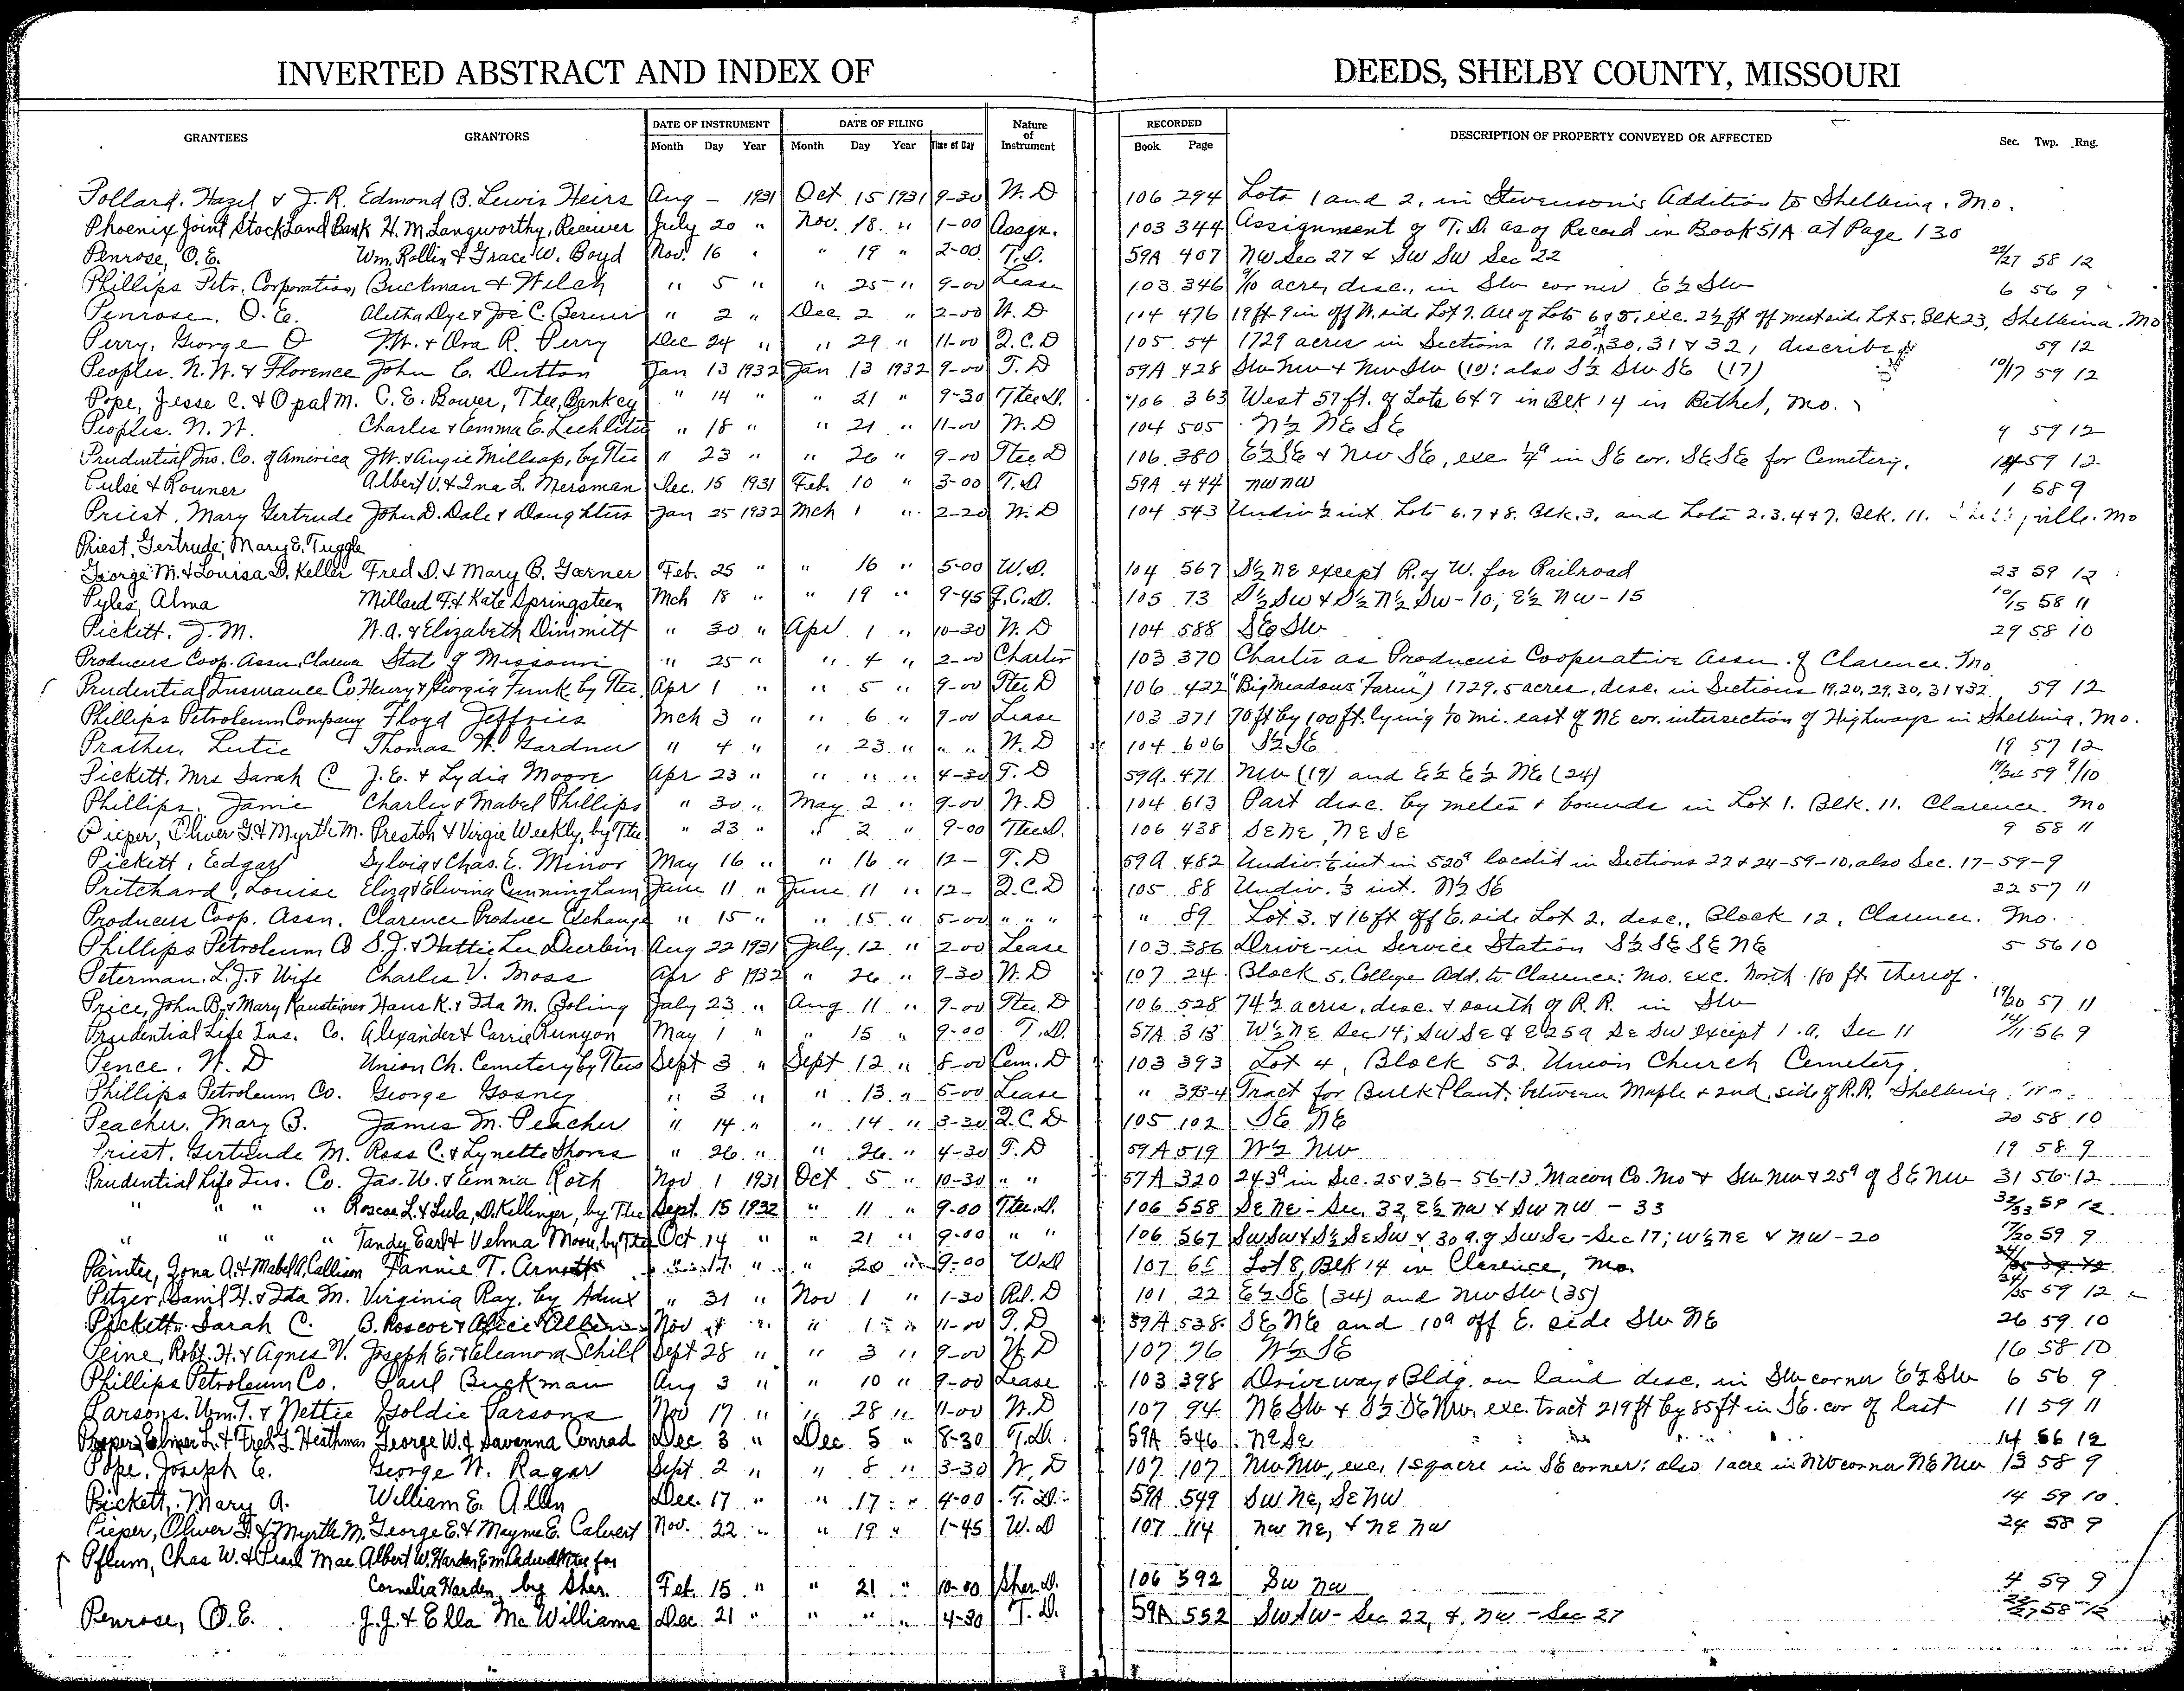 INVERTED ABSTRACT AND INDEX OF DEEDS, SHELBY COUNTY, MISSOURI
GRANTEES GRANTORS DATE OF INSTRUMENT DATE OF FILING Nature of Instrument RECORDED DESCRIPTION OF PROPERTY CONVEYED OR AFFECTED Sec. Twp. Rng.
Month Day Year Month Day Year Time of Day Book Page
Pollard, Hazel & J. R. Edmond B. Lewis Heirs Aug - 1931 Oct 15 1931 9-30 W. D 106 294 Lots 1 and 2, in Stevenson's Addition to Shelbina, Mo.
Phoenix Joint Stock Land Bank H. M Langworthy, Receiver July 20 " Nov. 18 " 1-00 Assgn. 103 344 Assignment of T. D. as of Record in Book 51A at Page 130
Penrose, O. E. Wm. Rollin & Grace W. Boyd Nov. 16 " " 19 " 2-00 T. D. 59A 407 NW Sec 27 & SW SW Sec 22 22/27 58 12
Phillips Petr. Corporation, Buckman & Welch " 5 " " 25 " 9-00 Lease 103 346 9/10 acre, desc., in SW corner E½ SW 6 56 9
Penrose, O. E. Aletha Dye & Joe C. " 2 " Dec. 2 " 2-00 W. D 104 476 19 ft 9 in off W. side Lot 7. All of Lots 6 & 5, exc. 2½ ft off west side Lot 5, Blk 23, Shelbina, Mo
Perry, George O J. W. & Ora R. Perry Dec 24 " " 29 " 11-00 Q. C. D 105 54 1729 acres in Sections 19, 20, 29, 30, 31 & 32, described 59 12
Peoples, N. W. & Florence John C. Dutton Jan 13 1932 Jan 13 1932 9-00 T. D 59A 428 SW NW & NW SW (10); also S½ SW SE (17) 10/17 59 12
Pope, Jesse C. & Opal M. C. E. Bower, Ttee, Bankcy " 14 " " 21 " 9-30 Ttee D. 106 363 West 57 ft. of Lots 6 & 7 in Blk 14 in Bethel, Mo.
Peoples, N. W. Charles & Emma E. Lechliter " 18 " " 21 " 11-00 W. D 104 505 N½ NE SE 9 59 12
Prudential Ins. Co. of America J.W. & Angie Millsap, by Ttee " 23 " " 26 " 9-00 Ttee D 106 380 E½ SE & NW SE, exc ¼ a in SE cor. SE SE for Cemetery. 59 12
Pulse & Rouner Albert V. & Ina L. Mersman Dec. 15 1931 Feb. 10 " 3-00 T. D 59A 444 NW NW 1 58 9
Priest, Mary Gertrude John D. Dale & Daughters Jan 25 1932 Mch 1 " 2-20 W. D 104 543 Undiv ½ int Lots 6, 7 & 8, Blk. 3, and Lots 2, 3, 4 & 7, Blk. 11. Mo
Priest, Gertrude; Mary E. Tuggle
George M. & Louisa D. Keller Fred D. & Mary B. Garner Feb. 25 " " 16 " 5-00 W. D. 104 567 S½ NE except R. of W. for Railroad 23 59 12
Pyles, Alma Millard F. & Kate Springsteen Mch 18 " " 19 " 9-45 Q. C. D. 105 73 S½ SW & S½ N½ SW-10; E½ NW-15 10/15 58 11
Pickett, J. M. W. A. & Elizabeth Dimmitt " 30 " Apr. 1 " 10-30 W. D 104 588 SE SW 29 58 10
Producers Coop. Assn, Clarence State of Missouri " 25 " " 4 " 2-00 Charter 103 370 Charter as Producers Cooperative Assn. of Clarence, Mo
Prudential Insurance Co. Henry & Georgia Funk by Ttee. Apr 1 " " 5 " 9-00 Ttee D 106 422 "Big Meadows Farm") 1729.5 acres, desc. in Sections 19, 20, 29, 30, 31 & 32 59 12
Phillips Petroleum Company Floyd Jeffries Mch 3 " " 6 " 9-00 Lease 103 371 70 ft by 100 ft. lying 1/10 mi. east of NE cor. intersection of Highways in Shelbina, Mo.
Prather, Lutie Thomas W. Gardner " 4 " " 23 " " " W. D 104 606 S½ SE 19 57 12
Pickett, Mrs Sarah C J. E. & Lydia Moore Apr 23 " " " " 4-30 T. D 59A 471 NW (19) and E½ E½ NE (24) 19/24 59 9/10
Phillips, Jamie Charley & Mabel Phillips " 30 " May 2 " 9-00 W. D 104 613 Part desc. by metes & bounds in Lot 1, Blk. 11, Clarence, Mo
Pieper, Oliver G. & Myrtle M. Preston & Virgie Weekly, by Ttee " 23 " " 2 " 9-00 Ttee D. 106 438 SE NE, NE SE 9 58 11
Pickett, Edgar Sylvia & Chas. E. Minor May 16 " " 16 " 12- T. D 59A 482 Undiv. int in 520 a located in Sections 22 & 24-59-10, also Sec. 17-59-9
Pritchard, Louise Eliza & Elwina Cunningham June 11 " June 11 " 12- Q. C. D 105 88 Undiv. ⅓ int. N½ SE 22 57 11
Producers Coop. Assn. Clarence Produce Exchange " 15 " " 15 " 5-00 " " " " 89 Lot 3, & 16 ft off E. side Lot 2, desc., Block 12, Clarence, Mo.
Phillips Petroleum Co S. J. & Hattie Lee Durbin Aug 22 1931 July 12 " 2-00 Lease 103 386 Drive-in Service Station S½ SE SE NE 5 56 10
Peterman, L. J. & Wife Charles V. Moss Apr 8 1932 " 26 " 9-30 W. D 107 24 Block 5, College Add. to Clarence, Mo. exc. North 180 ft thereof.
Price, John B. & Mary Hans K. & Ida M. Boling July 23 " Aug 11 " 9-00 Ttee D 106 528 74½ acres, desc. & south of R. R. in SW 19/20 57 11
Prudential Life Ins. Co. Alexander & Carrie Runyon May 1 " " 15 " 9-00 T. D. 57A 313 W½ NE Sec 14; SW SE & E 25 a SE SW except 1 a. Sec 11 14/11 56 9
Pence, W. D Union Ch. Cemetery by Ttees Sept 3 " Sept 12 " 8-00 Cem. D 103 393 Lot 4, Block 52, Union Church Cemetery
Phillips Petroleum Co. George Gosney " 3 " " 13 " 5-00 Lease " 393-4 Tract for Bulk Plant, between Maple & 2nd, side of R.R. Shelbina, Mo.
Peacher, Mary B. James M. Peacher " 14 " " 14 " 3-30 Q. C. D 105 102 SE NE 20 58 10
Priest, Gertrude M. Ross C. & Lynette Shores " 26 " " 26 " 4-30 T. D 59A 519 W½ NW 19 58 9
Prudential Life Ins. Co. Jas. W. & Emma Roth Nov 1 1931 Oct 5 " 10-30 " " 57A 320 243 a in Sec. 25 & 36-56-13, Macon Co. Mo & SW NW & 25 a of SE NW 31 56 12
" " " " Roscoe L. & Lula D. Kellinger, by Ttee Sept. 15 1932 " 11 " 9-00 Ttee D. 106 558 SE NE - Sec. 32, E½ NW & SW NW - 33 32/33 59 12
" " " " Tandy Earl & Velma Moon, by Ttee Oct 14 " " 21 " 9-00 " " 106 567 SW SW & S½ SE SW & 30 a. of SW SE - Sec 17; W½ NE & NW - 20 17/20 59 9
Painter, Zona A. & Mabel A. Callison Fannie T. Arnett " 17 " " 20 " 9-00 W. D 107 65 Lot 8, Blk 14 in Clarence, Mo.
Pitzer, Daniel H. & Ida M. Virginia Ray, by Admx " 31 " Nov 1 " 1-30 Rel. D 101 22 E½ SE (34) and NW SW (35) 34/35 59 12
Pickett, Sarah C. B. Roscoe & Alice Nov " " 1 " 11-00 T. D 59A 538 SE NE and 10 a off E. side SW NE 26 59 10
Peine, Robt. H. & Agnes V. Joseph E. & Eleanora Schill Sept 28 " " 3 " 9-00 W. D 107 76 W½ SE 16 58 10
Phillips Petroleum Co. Paul Buckman Aug 3 " " 10 " 9-00 Lease 103 398 Driveway & Bldg. on land desc. in SW corner E½ SW 6 56 9
Parsons, Wm. T. & Nettie Goldie Parsons Nov 17 " " 28 " 11-00 W. D 107 94 NE SW & S½ SE NW, exc. tract 219 ft by 85 ft in SE. cor of last 11 59 11
Elmer L. & Fred L. Heathman George W. & Savanna Conrad Dec. 3 " Dec. 5 " 8-30 T. D. 59A 546 NE SE 14 56 12
Pope, Joseph E. George W. Ragar Sept. 2 " " 8 " 3-30 W. D 107 107 NW NW, exc. 1 sq acre in SE corner; also 1 acre in NW corner NE NW 13 58 9
Pickett, Mary A. William E. Allen Dec. 17 " " 17 " 4-00 T. D. 59A 549 SW NE, SE NW 14 59 10
Pieper, Oliver G. & Myrtle M. George E. & Mayme E. Calvert Nov. 22 " " 19 " 1-45 W. D 107 114 NW NE, & NE NW 24 58 9
Pflum, Chas W. & Pearl Mae Albert W. Harden, for
Cornelia Harden, by Sher. Feb. 15 " " 21 " 10-00 Sher D. 106 592 SW NW 4 59 9
Penrose, O. E. J. J. & Ella McWilliams Dec 21 " " " " 4-30 T. D. 59A 552 SW SW - Sec 22, & NW - Sec 27 22/27 58 12